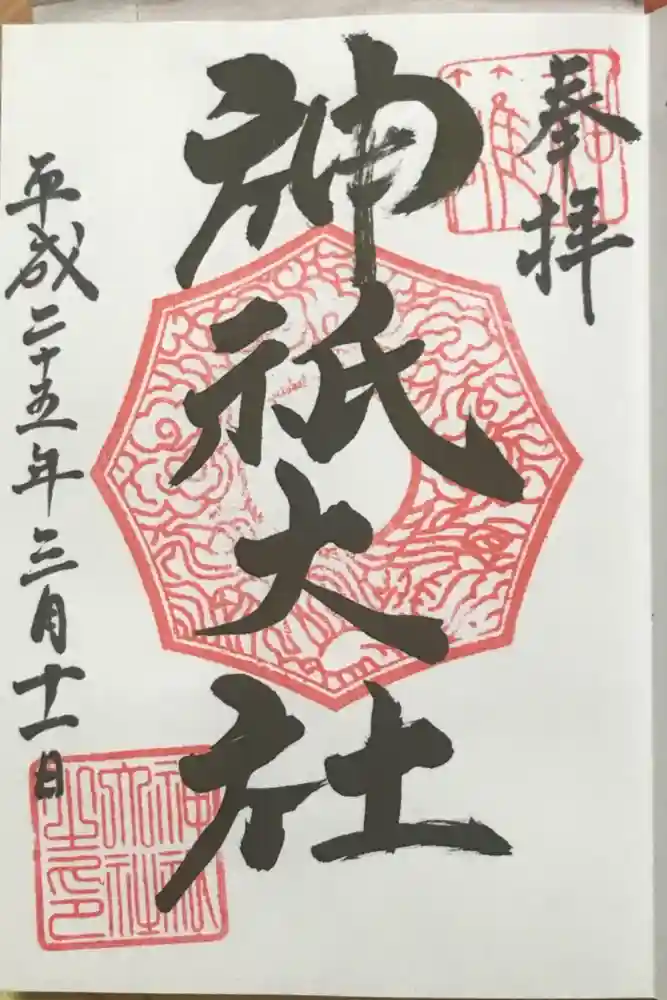 奉拝
神祇大社
平成二十五年三月十一日
神祇大社之印